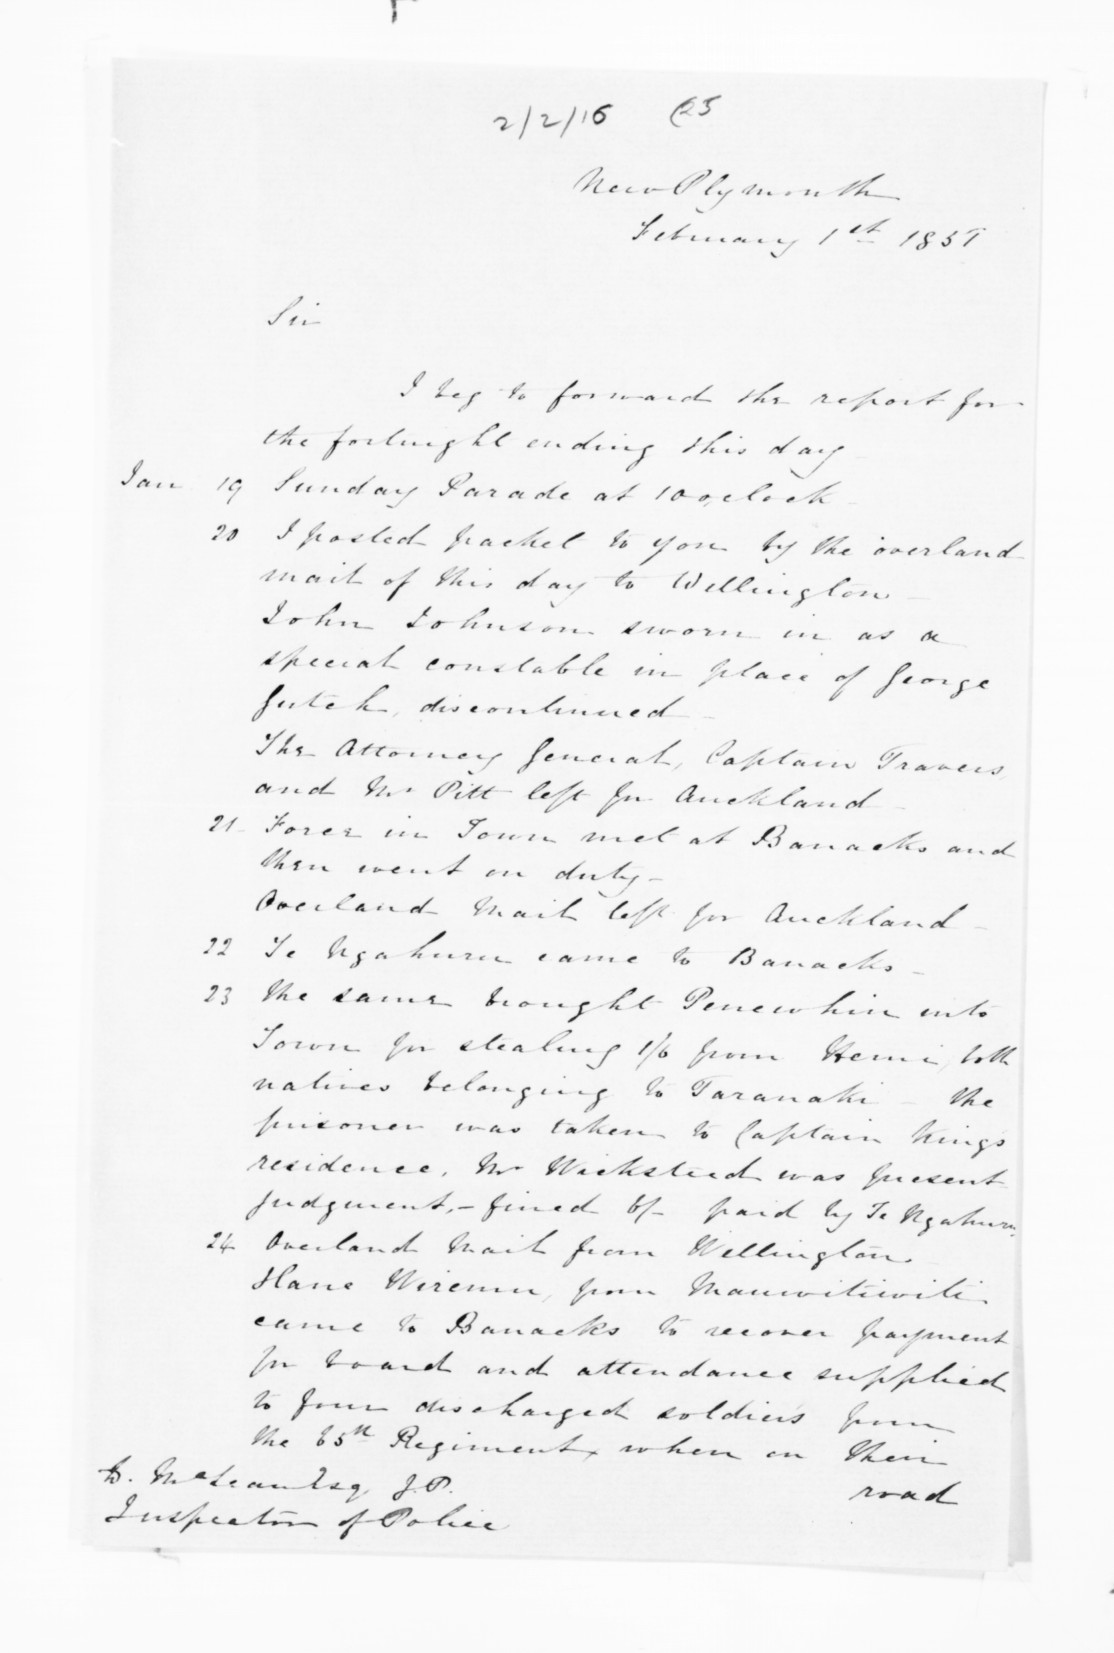 2/2/16 (25
New Plymouth
February 1st 1851
Sir
I beg to forward the report for
the fortnight ending this day
Jan 19 Sunday Parade at 10 o,clock
20 I posted packet to you by the overland
mail of this day to Wellington -
John Johnson sworn in as a
special constable in place of George
Gutch, discontinued -
The Attorney General, Captain Travers,
and Mr Pitt left for Auckland -
21 - Force in Town met at Banacks and
then went on duty -
Overland Mail left for Auckland -
22 Te Ngahuru came to Banacks -
23 the same brought Penewhira into
Town for stealing 1/6 from Hemi, both
natives belonging to Taranaki - the
prisoner was taken to Captain King's
residence, Mr Wicksteed was present
Judgment, - fined 6/- paid by Te Ngahuru.
24 Overland Mail from Wellington
Hane Wiremu, from Manwitiwiti
came to Banacks to recover payment
for board and attendance supplied
to four discharged soldiers from
the 65th Regiment, when on their
road
D. McLean Esq, J.P.
Inspector of Police